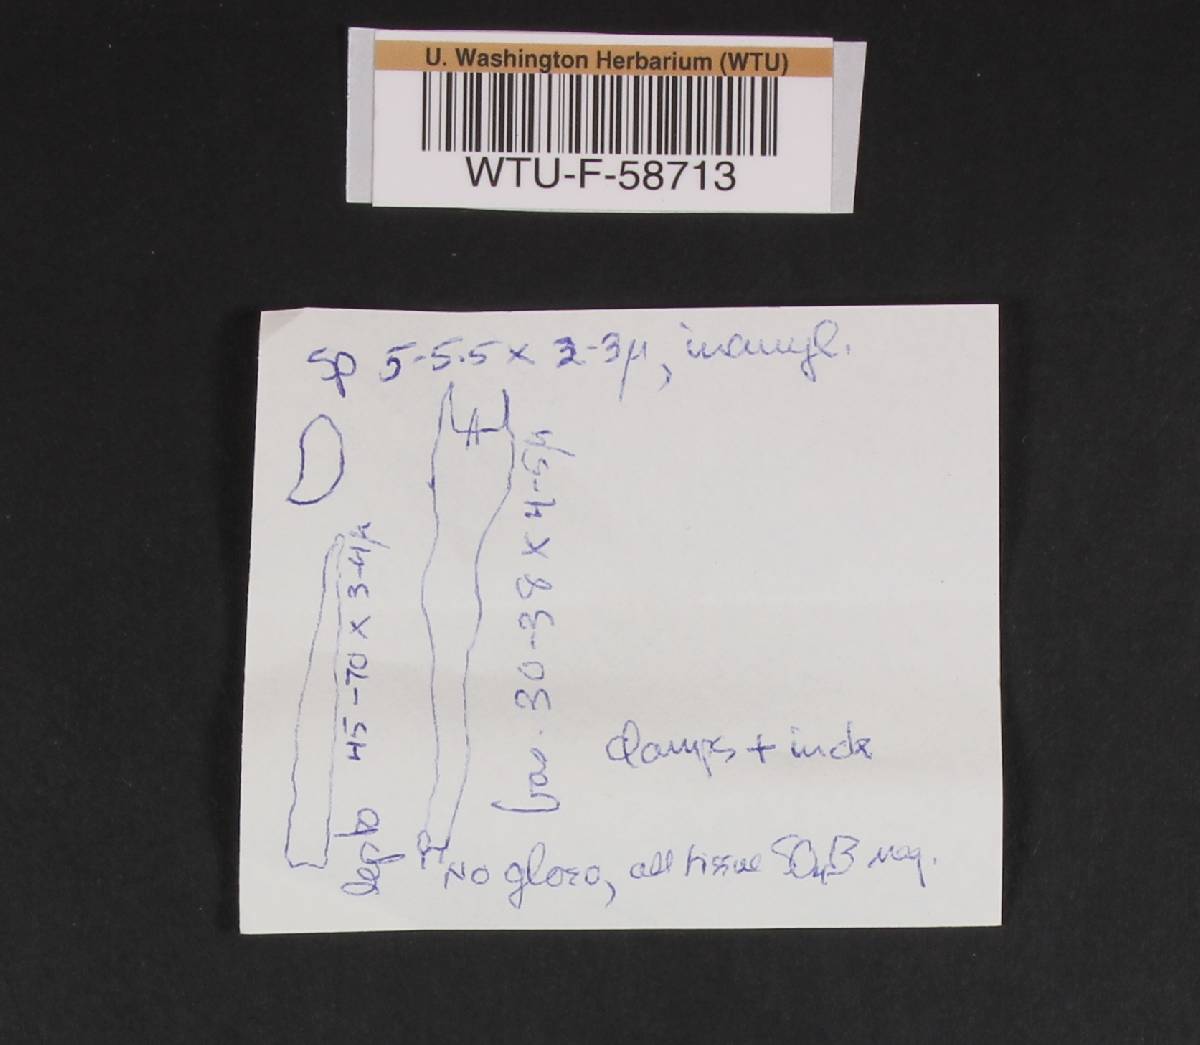 U. Washington Herbarium (WTU)
WTU-F-58713
Sp 5-5.5 x 2-3µ, inamyl.
4
bas. 30-38 x 4-5µ
lepto 45-70 x 3-4µ
Clamps + inck
No gloeo, all tissue SO4B neg.